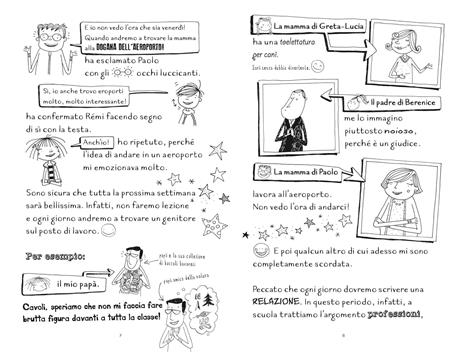 E io non vedo l'ora che sia venerdì!
Quando andremo a trovare la mamma
alla DOGANA DELL'AEROPORTO!
ha esclamato Paolo
con gli occhi luccicanti.
Sì, io anche trovo eroporti
molto, molto interessante!
ha confermato Rémi facendo segno
di sì con la testa.
Anch'io! ho ripetuto, perché
l'idea di andare in un aeroporto
mi emozionava molto.
Sono sicura che tutta la prossima settimana
sarà bellissima. Infatti, non faremo lezione
e ogni giorno andremo a trovare un genitore
sul posto di lavoro.
Per esempio:
il mio papà.
papà e la sua collezione
di boccoli
papà amico della natura
Cavoli, speriamo che non mi faccia fare
brutta figura davanti a tutta la classe!
7
La mamma di Greta-Lucia
ha una toelettatura
per cani.
Sarà senza dubbio divertente.
Il padre di Berenice
me lo immagino
piuttosto noioso,
perché è un giudice.
La mamma di Paolo
lavora all'aeroporto.
Non vedo l'ora di andarci!
E poi qualcun altro di cui adesso mi sono
completamente scordata.
Peccato che ogni giorno dovremo scrivere una
RELAZIONE. In questo periodo, infatti, a
scuola trattiamo l'argomento professioni,
8